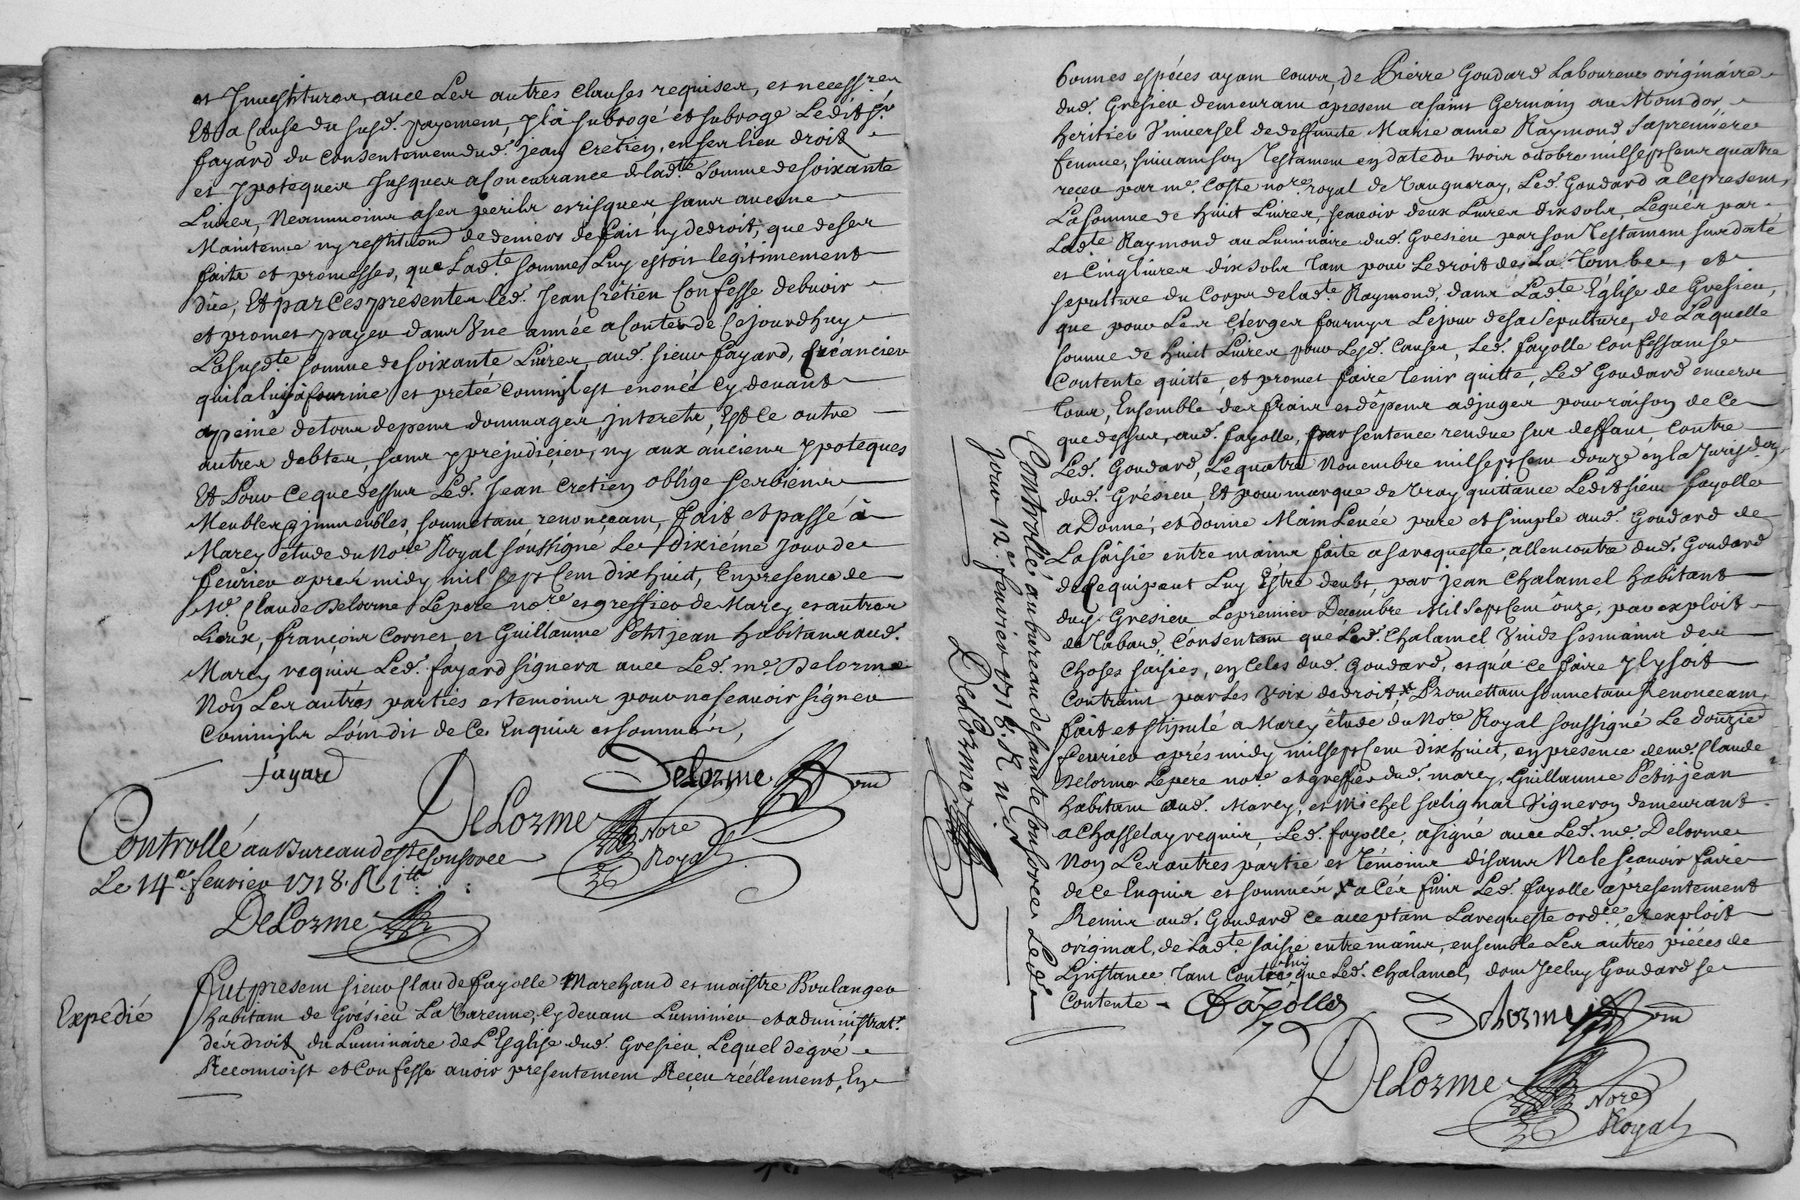 et Investitures, avec Les autres Clauses requises, et necessres
Et a Cause du susd. payement, y l'a subrogé et subroge Ledit sr.
fayard du consentement dud. Jean Cretien, en ses lieu droit
et ypoteques Jusques a Concurrance de lad.te somme de soixante
Livres, Neanmoins a ses perils et risques sans aucune
Maintenue ny restitution de deniers de fait ny de droit, que de ses
faits et promesses, que Lad.te somme Luy estoit légitimement
düe, Et par Ces presentes led. Jean Crêtien Confesse debvoir
et promet payer dans Une année a Conter de Cejourdhuy
La susd.te somme de soixante Livres, aud. sieur fayard,
qu'il a luy a fournie et pretée Comm'il est enoncé cy devant
a peine de tous depens dommages interests, Et Ce outre
autres debtes, sans y préjudicier, ny aux anciens ypoteques
Et Pour Ce que dessus Led. Jean Cretien oblige ses biens
Meubles & immeubles, soumetant, renonçeant, fait et passé à
Marcy étude du Nore. Royal soussigné Le dixiéme Jour de
fevrier aprés midy mil sept Cent dix huict, En presence de
Me. Claude Delorme Le pere nore. et greffier de Marcy et autres
Lieux, françois Cornet et Guillaume Petitjean habitans aud.
Marcy requis Led. fayard signera avec Led. me. Delorme
Non Les autres parties et temoins pour ne scavoir signer
Comm'ils L'ont dit de Ce Enquis et sommés,
fayard
Delorme
DeLorme Nore Royal
Controllé au Bureau de ste Consorce
Le 14e. fevrier 1718. R
DeLorme
Expedié
Fut present sieur Claude fayolle Marchand et maistre Boulanger
habitant de Grésieu La Varenne, Cy devant Luminier et administrat.
des droit du Luminaire de L'Esglise dud. Gresieu, Lequel de gré
Reconnoist et Confesse avoir presentement Reçeu réellement, En
bonnes espéces ayant cours, de Pierre Goudard Laboureur originaire
dud. Grésieu demeurant apresent a saint Germain au Montdor
heritier Universel de deffunte Marie anne Raymond sa premiére
femme, suivant son Testament en datte du trois octobre mil sept Cent quatre
reçeu par me. Coste nore. royal de Vaugneray, Led. Goudard a Ce present,
La somme de huict Livres, scavoir deux Livres dix sols, Legués par
Lad.te Raymond au Luminaire dud. Gresieu par son Testament susdaté
et Cinq livres dix sols tant pour Le droit de La Tombe, et
sepulture du Corps de lad.te Raymond, dans Lad.te Eglise de Gresieu,
que pour Les Cierges fournys Le jour de sa sepulture, de Laquelle
somme de huit Livres pour Lesd. Causes, Led. fayolle Confessant se
Contente quitte, et promet faire tenir quitte, Led. Goudard envers
tous, Ensemble des frais et dépens adjugés pour raison de Ce
que dessus, aud. fayolle, par sentence rendue sur deffaut, Contre
Led. Goudard, Le quatre Novembre mil sept Cent douze en la Jurisd.on
dud. Grésieu, Et pour marque de Vray quittance Ledit sieur fayolle
a Donné, et donne Main Levée pure et simple aud. Goudard de
La saisie entre mains faite a sa requeste, allencontre dud. Goudard
de Ce qui peut Luy Estre deubt, par jean Chalamel habitant
dud. Gresieu, Le premier Decembre Mil sept Cent ônze, par exploit
de Tabard, Consentant que Led. Chalamel Vuide ses mains des
Choses saisies, en Celes dud. Goudard, et qu'a Ce faire yl y soit
Contraint par Les Voix de droit, Promettant soumetant Renonceant,
fait et stipulé a Marcy étude du Nore. Royal soussigné Le douzie.
fevrier aprés midy mil sept Cent dix huict, en presence de me. Claude
Delorme Le pere nore. et greffier dud. marcy, Guillaume Petitjean
habitant aud. Marcy, et Michel salignat Vigneron demeurant
a Chasselay requis, Led. fayolle, a signé avec Led. me. Delorme
Non Les autres partie et témoins disans Ne le scavoir faire
de Ce Enquis et sommés x a Cés fins Led. fayolle a présentement
Remis aud. Goudard Ce acceptant La requeste ordce. et exploit
original, de Lad.te saisie entre mains, ensemble Les autres piéces de
L'instance tant Contre luy que Led. Chalamel, dont Jceluy Goudard se
Contente
C fayolle
Delorme
DeLorme Nore Royal
Controllé au bureau de sainte Consorce Led.
jour 12e. fevrier 1718. R
DeLorme